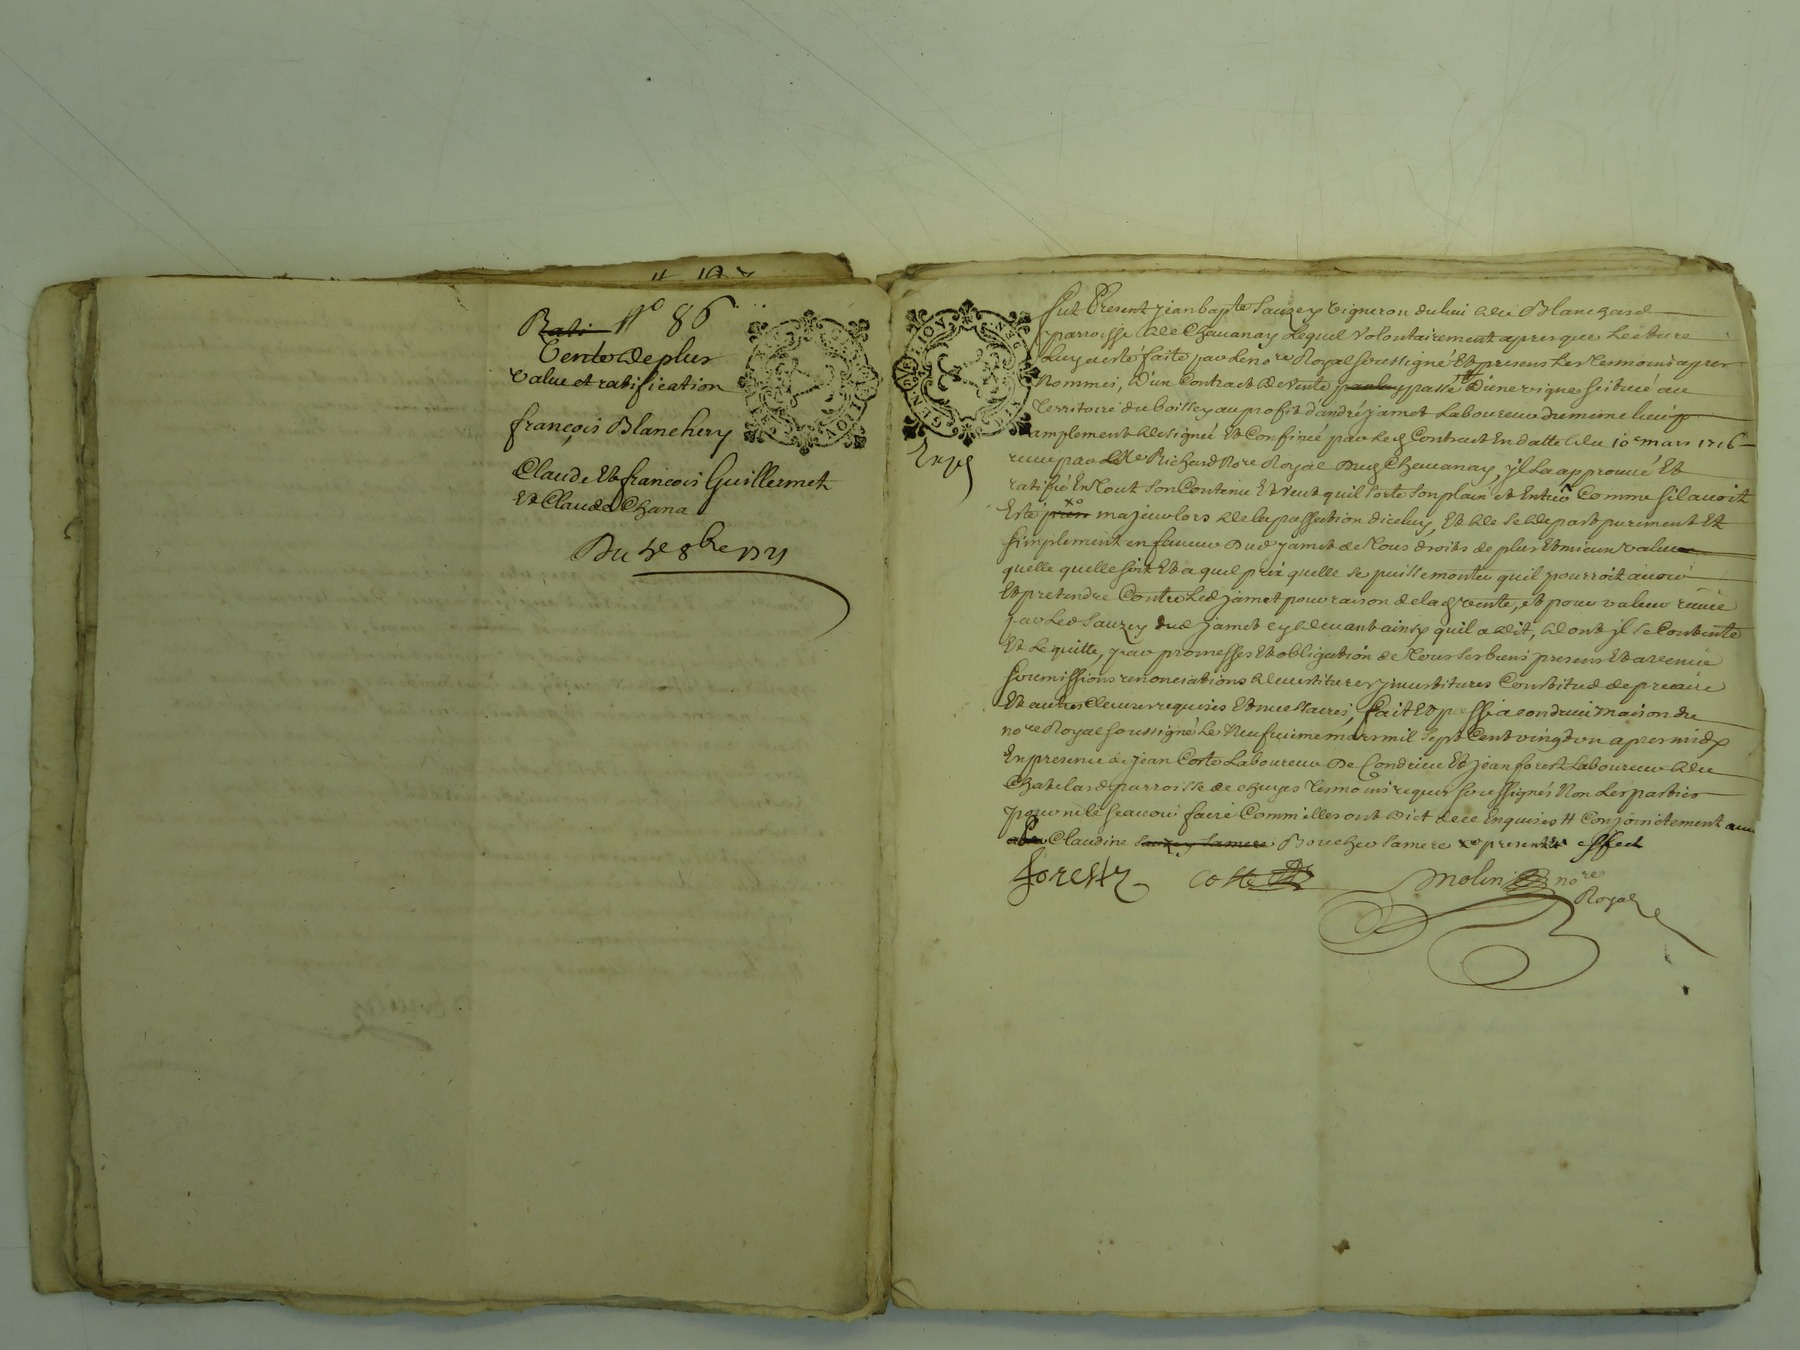 Rati N° 86
Vente de plus
value et ratification
françois Blanchery
Claude Et francois Guillermet
Et Claude Chana
Du 5e 8bre 1721
fut Present jean bapte Sauzey vigneron du lieu du Blanchard
parroisse de Chauanay Lequel volontairement apres que Lecture
Luy a esté faite par Le nore Royal soussigné Et presens Les temoins apres
Nommés, d'un Contract de vente passé d'une vigne scituée au
Territoire du boissey au profit d'andré jamet Laboureur du meme lieu
amplement designée Et Confinée par led Contract En datte du 10e mars 1716
receu par Me Richard Nore Royal Dud Chauanay, jl La approuué Et
Exped
ratifié En tout son Contenu Et veut quil sorte son plain et Entier Comme sil auoit
Este majeur lors de la passation diceluy, Et de se depart purement Et
simplement en faueur Dud jamet de tous droits de plus Et mieux value
quelle quelle soit Et a quel prix quelle se puisse monter quil pourroit auoir
Et pretendre Contre Led jamet pour raison de lad vente, et pour valeur receue
par Led Sauzey dud jamet cy deuant ainsy quil a dit, dont jl se Contente
Et Le quitte, par promesses Et obligation de tous ses biens presens Et a venir
soumissions renonciations deuestitures jnuestitures Constitut de precaire
Et autres Clauses requises Et necessaires, fait Et passé a Condrieu maison du
nore Royal soussigné Le Neufuieme mars mil sept Cent vingt un apres midy
En presence de jean Coste Laboureur De Condrieu Et jean forest Laboureur du
Chatelard parroisse de chuyes temoins requis soussignés Non Les parties
pour ne le scauoir faire Comm'elles ont dict de ce Enquises # Conjoinctement auec
Claudine Sauzey sa mere Boucher sa mere xo present effect
forest coste molin nore
Royal